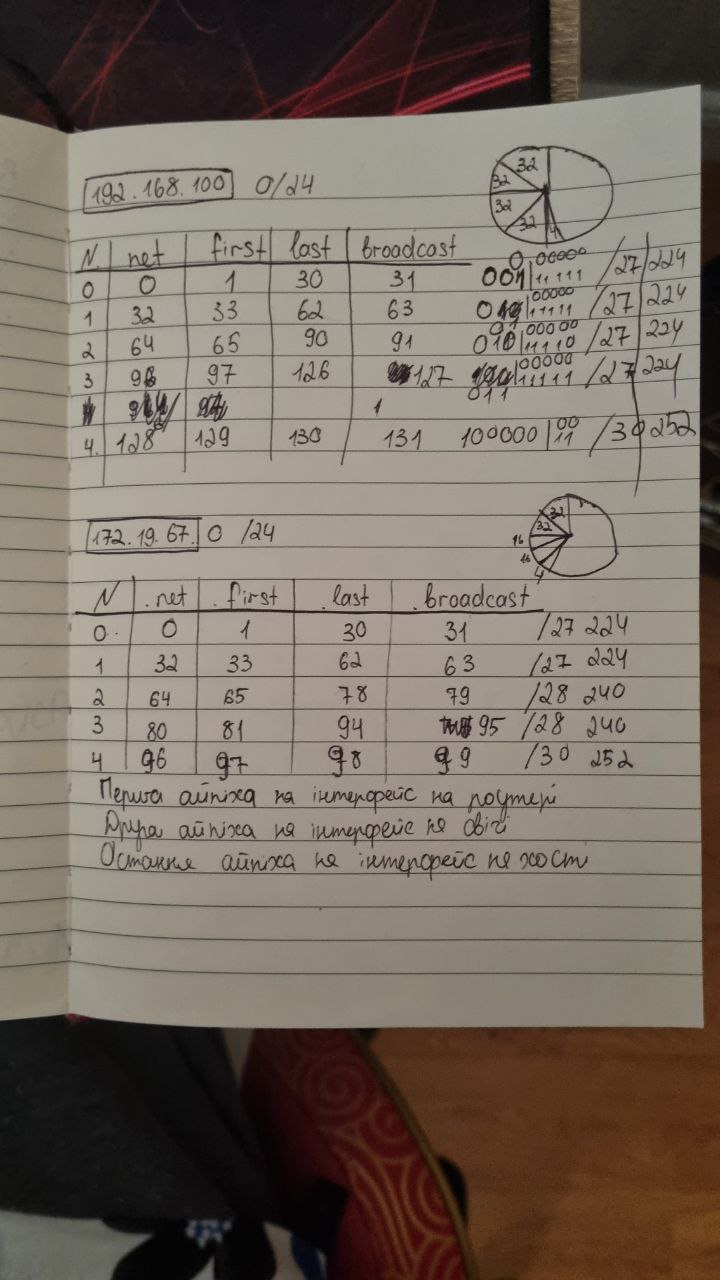 192.168.100 0/24
32
32
32
32
4
N net first last broadcast
0 0 1 30 31 001|00000 11111 /27 224
1 32 33 62 63 00000 11111 /27 224
2 64 65 90 91 010|00000 11110 /27 224
3 96 97 126 127 00000 11111 011 /27 224
4. 128 129 130 131 100000|00 11 /30 252
172.19.67. 0 /24
32
32
16
16
4
N .net .first .last .broadcast
0. 0 1 30 31 /27 224
1 32 33 62 63 /27 224
2 64 65 78 79 /28 240
3 80 81 94 95 /28 240
4 96 97 98 99 /30 252
Перша айпіха на інтерфейс на роутері
Друга айпіха на інтерфейс на свічі
Остання айпіха на інтерфейс на хості